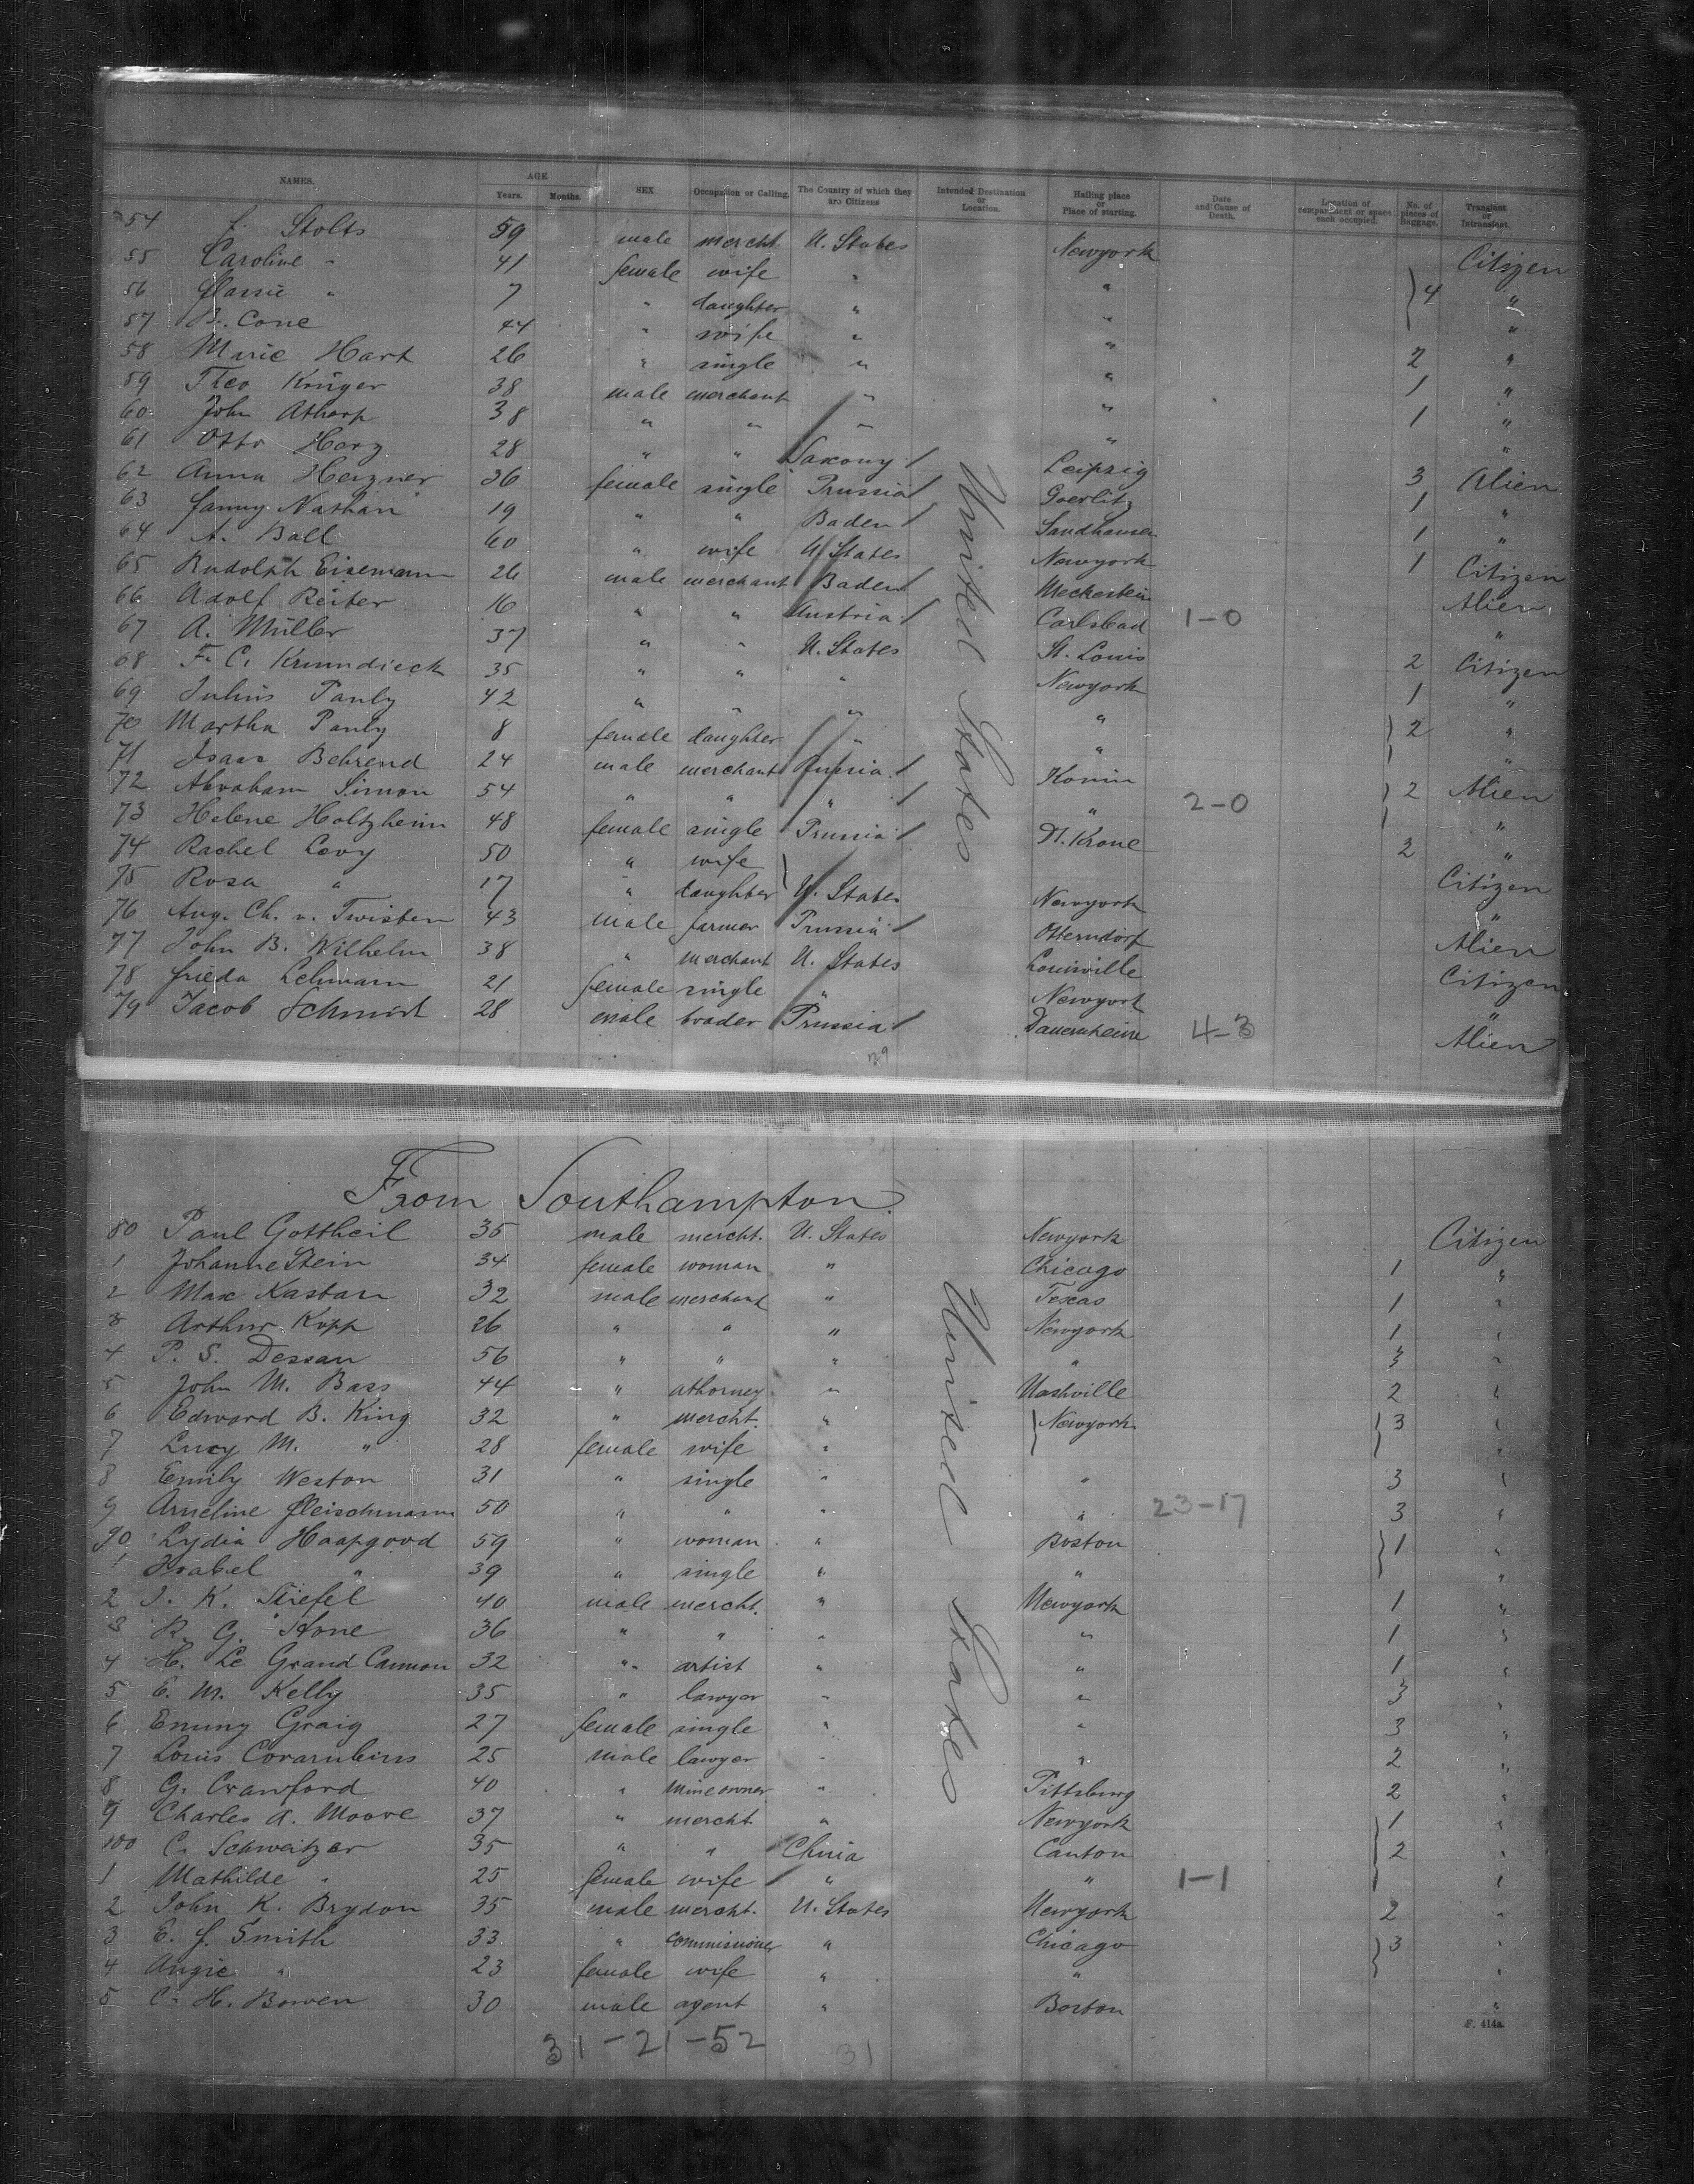 NAMES. AGE Years. Months. SEX Occupation or Calling. The Country of which they are Citizens Intended Destination or Location. Hailing place or Place of starting. Date and Cause of Death. Location of compartment or space each occupied. No. of pieces of Baggage. Transient or Intransient.
54 Stolts 59 male mercht. U. States Newyork Citizen
55 Caroline " 41 female wife " " 4 "
56 " 7 " daughter " " "
57 B. Cone 44 " wife " " 2 "
58 Marie Hart 26 " single " " 1 "
59 Theo Krüger 38 male merchant " " 1 "
60 John Atharp 38 " " " " "
61 Otto Herz 28 " " Saxony / Leipzig 3 Alien
62 Anna Herzner 36 female single Prussia / Goerlitz 1 "
63 Fanny Nathan 19 " " Baden / Sandhausen 1 "
64 A. Ball 60 " wife U. States Newyork 1 Citizen
65 Rudolph Eisemann 26 male merchant Baden / Meckestein Alien
66 Adolf Reiter 16 " " Austria / Carlsbad 1-0 "
67 A. Müller 37 " " U. States St. Louis 2 Citizen
68 F. C. Krumdieck 35 " " " Newyork 1 "
69 Julius Pauly 42 " " " " 2 "
70 Martha Pauly 8 female daughter " " "
71 Isaac Behrend 24 male merchant Russia / Konin 2 Alien
72 Abraham Simon 54 " " " / " 2-0 "
73 Helene Holtzheim 48 female single Prussia / Dt. Krone 2 "
74 Rachel Levy 50 " wife Citizen
75 Rosa " 17 " daughter U. States Newyork "
76 Aug. Ch. v. Twistern 43 male farmer Prussia / Otterndorf Alien
77 John B. Wilhelm 38 " merchant U. States Louisville Citizen
78 Frieda Lehmann 21 female single " Newyork "
79 Jacob Schmidt 28 male trader Prussia / Dauernheim 4-3 Alien
United States
From Southampton.
80 Paul Gottheil 35 male mercht. U. States Newyork Citizen
1 Johanne Stein 34 female woman " Chicago 1 "
2 Max Kastan 32 male merchant " Texas 1 "
3 Arthur Kopp 26 " " " Newyork 1 "
4 P. S. Dessau 56 " " " " 3 "
5 John M. Bass 44 " attorney " Nashville 2 "
6 Edward B. King 32 " mercht. " Newyork 3 "
7 Lucy M. " 28 female wife " "
8 Emily Weston 31 " single " " 3 "
9 Armeline Fleischmann 50 " " " " 23-17 3 "
90 Lydia Haapgood 59 " woman " Boston 1 "
1 Isabel " 39 " single " " "
2 J. K. Stiefel 40 male mercht. " Newyork 1 "
3 R. G. Stone 36 " " " " 1 "
4 H. Le Grand Cannon 32 " artist " " 1 "
5 E. M. Kelly 35 " lawyer " " 3 "
6 Emmy Graig 27 female single " " 3 "
7 Louis Covarrubius 25 male lawyer " " 2 "
8 G. Crawford 40 " mine owner " Pittsburg 2 "
9 Charles A. Moore 37 " mercht. " Newyork 1 "
100 C. Schweitzer 35 " " China Canton 2 "
1 Mathilde " 25 female wife " " 1-1 "
2 John K. Brydon 35 male mercht. U. States Newyork 2 "
3 E. J. Smith 33 " commissioner " Chicago 3 "
4 Angie " 23 female wife " " "
5 C. H. Bowen 30 male agent " Boston "
United States
F. 414a.
31-21-52 31